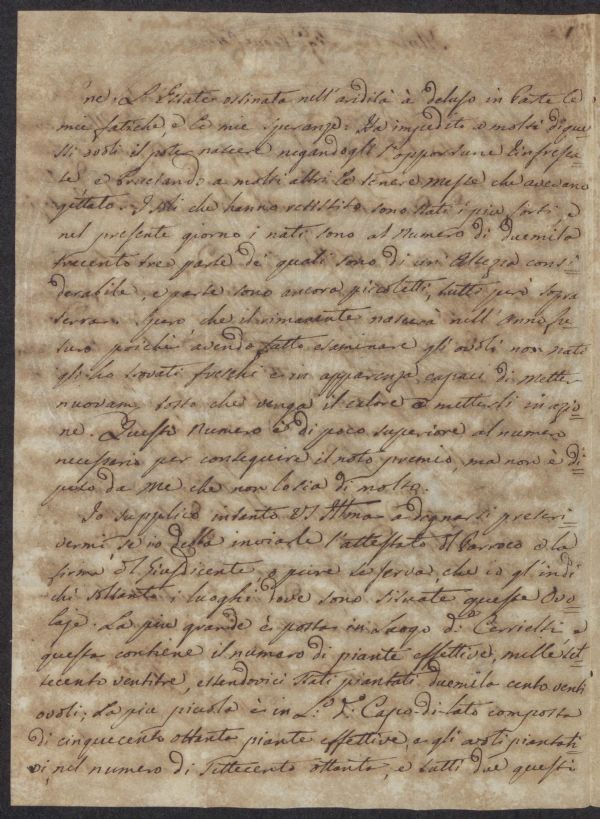 ne. L'Estate ostinata nell'aridità à deluso in Parte le
mie fatiche, e le mie speranze: Ha impedito a molti di que-
sti ovoli il poter nascere negandogli l'opportune
e bruciando a molti altri le tenere messe che avevano
gettato. I soli che hanno resistito sono stati i più forti, e
nel presente giorno i nati sono al Numero di duemila
trecento tre parte de' quali sono di un'Altezza consi-
derabile, e parte sono ancora piccoletti, tutti però sopra
terra. Spero che il rimanente nascerà nell'Anno fu-
turo poichè avendo fatto esaminare gl'ovoli non nati
gli ho trovati freschi e in apparenza capaci di mette
nuovam. tosto che venga il calore a metterli in azio-
ne. Questo Numero è di poco superiore al numero
necessario per conseguire il noto premio, ma non è di-
peso da me che non lo sia di molto.
Io supplico intanto VS Illma a degnarsi prescri-
vermi se io debba inviarle l'attestato del Parroco e la
firma del Giusdicente, o pure se serva, che io gl'indi
chi soltanto i luoghi dove sono situate queste Ovo-
laje. La più grande è posta in Luogo di e
questa contiene il numero di piante effettive, mille set-
tecento ventitre, essendovici stati piantati duemila cento venti
ovoli; La più piccola è in L.o d.o Capo di lato composta
di cinquecento ottanta piante effettive, e gli ovoli piantati-
vi, nel numero di Settecento ottanta, e tutti due questi